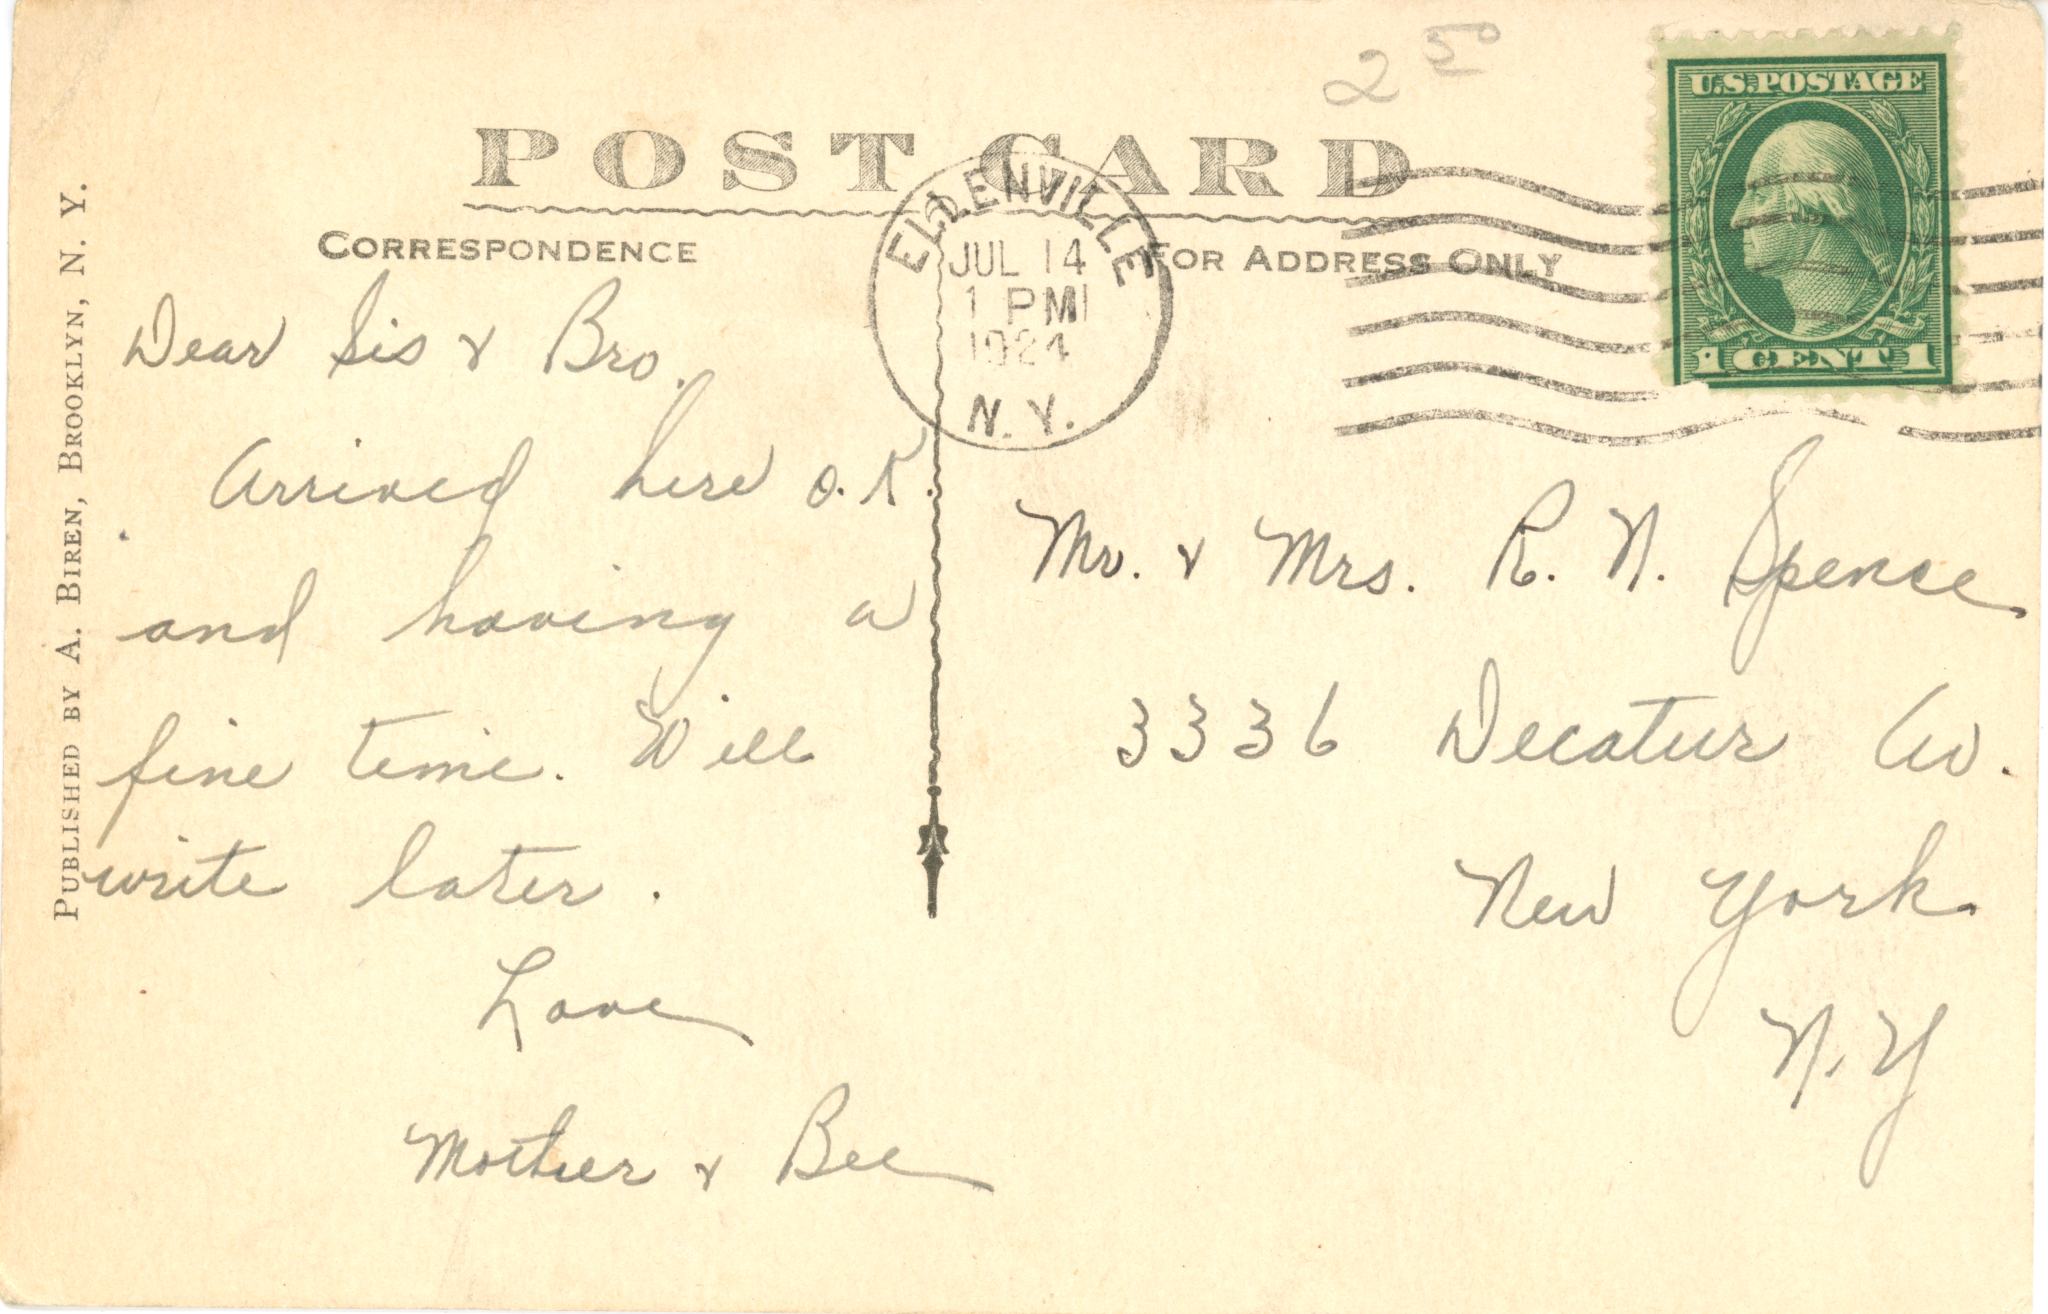 2 50
U.S. POSTAGE
1 CENT 1
POST CARD
ELLENVILLE
JUL 14
1 PM
1924
N. Y.
CORRESPONDENCE
FOR ADDRESS ONLY
PUBLISHED BY A. BIREN, BROOKLYN, N. Y.
Dear Sis & Bro.
Arrived here O.K.
and having a
fine time. Will
write later.
Love
Mother & Bee
Mr. & Mrs. R. N. Spence
3336 Decatur Av.
New York
N.Y